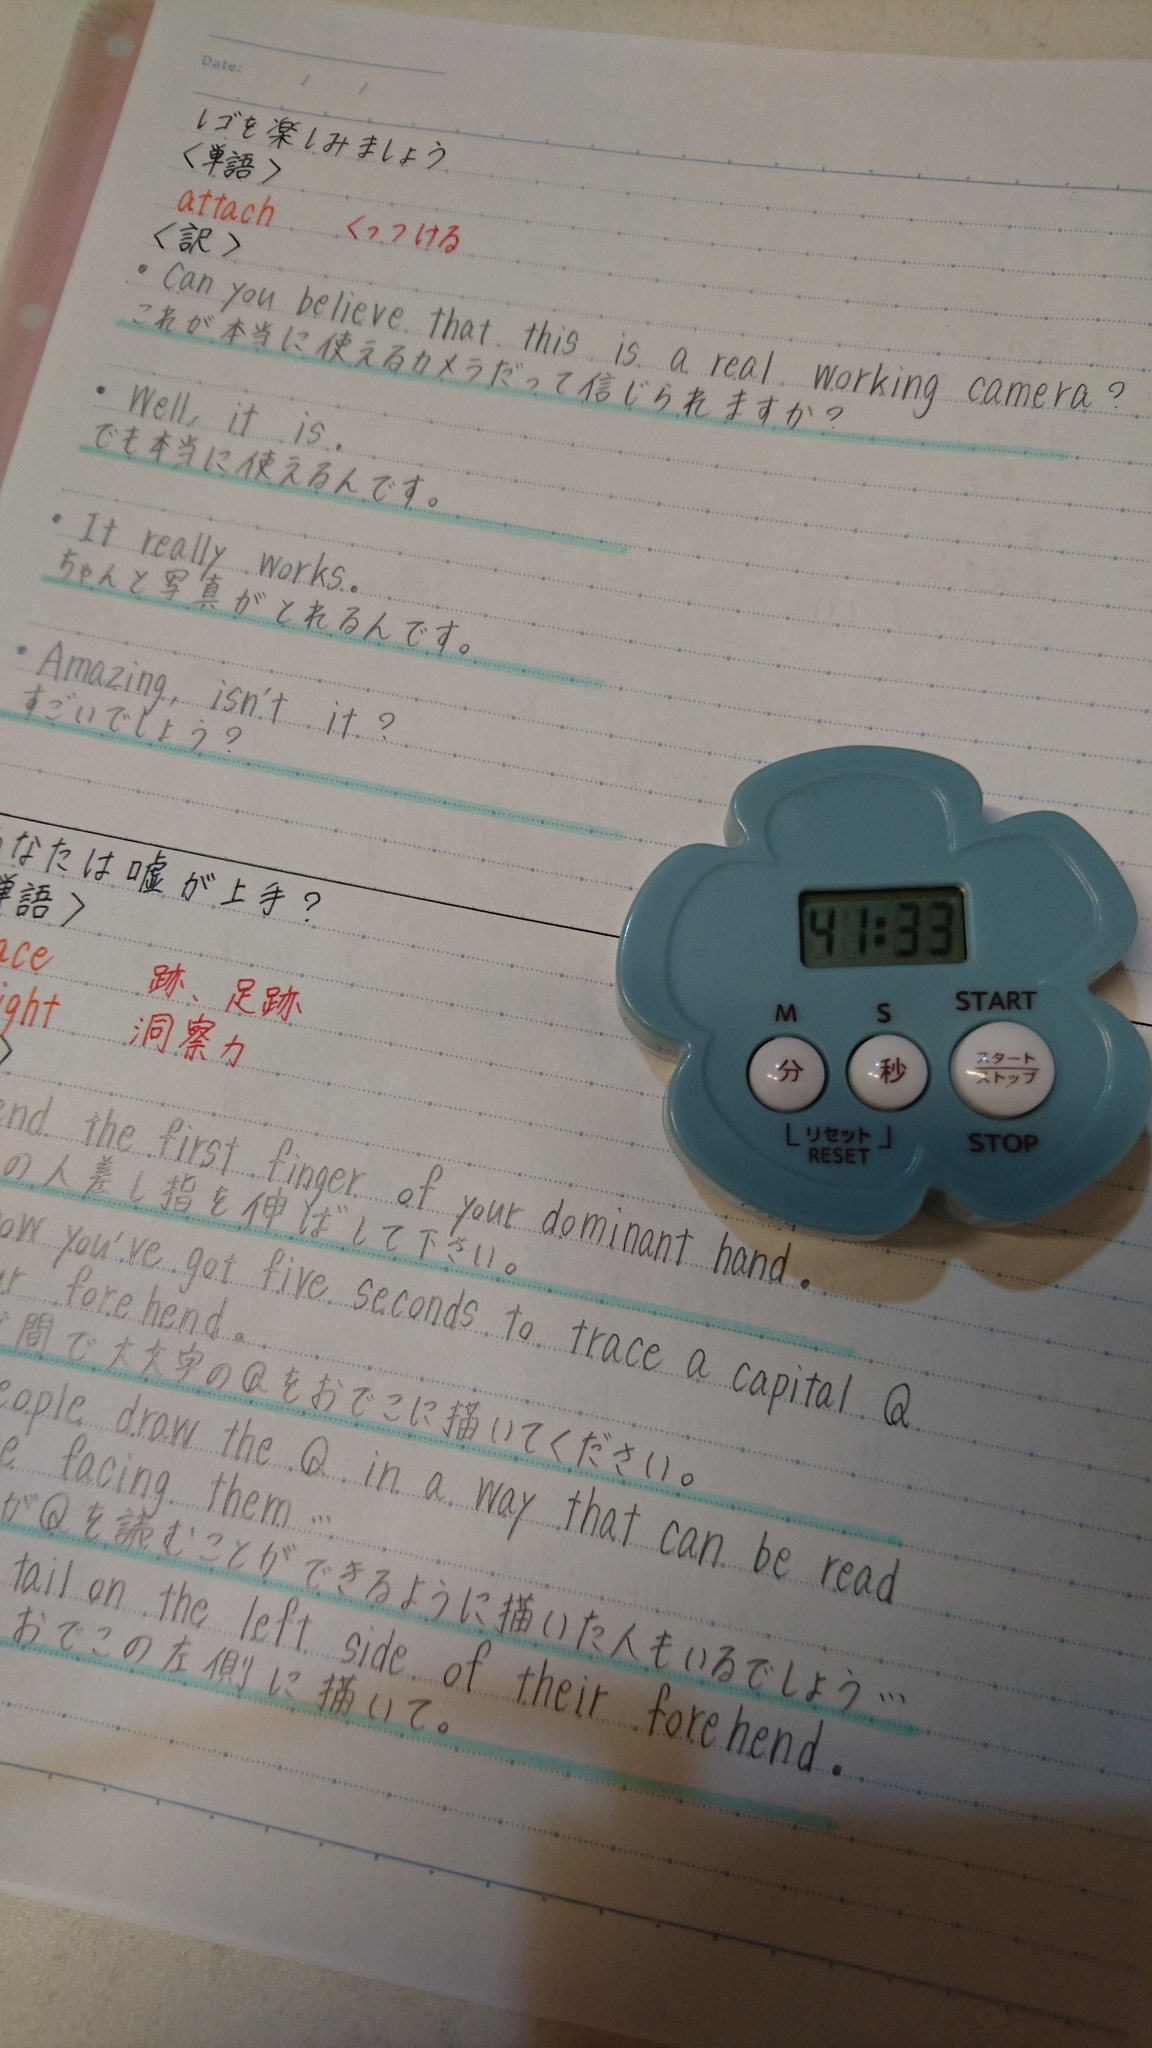 Date: / /
レゴを楽しみましょう
〈単語〉
attach くっつける
〈訳〉
・Can you believe that this is a real working camera?
これが本当に使えるカメラだって信じられますか?
・Well, it is.
でも本当に使えるんです。
・It really works.
ちゃんと写真がとれるんです。
・Amazing, isn't it?
すごいでしょう?
なたは嘘が上手?
単語〉
ace 跡、足跡
ight 洞察力
〉
end the first finger of your dominant hand.
の人差し指を伸ばして下さい。
ow you've got five seconds to trace a capital Q
ur forehend.
間で大文字のQをおでこに描いてください。
eople draw the Q in a way that can be read
e facing them…
がQを読むことができるように描いた人もいるでしょう…
tail on the left side of their forehend.
おでこの左側に描いて。
41:33
M S START
分 秒 スタート
ストップ
リセット
RESET STOP